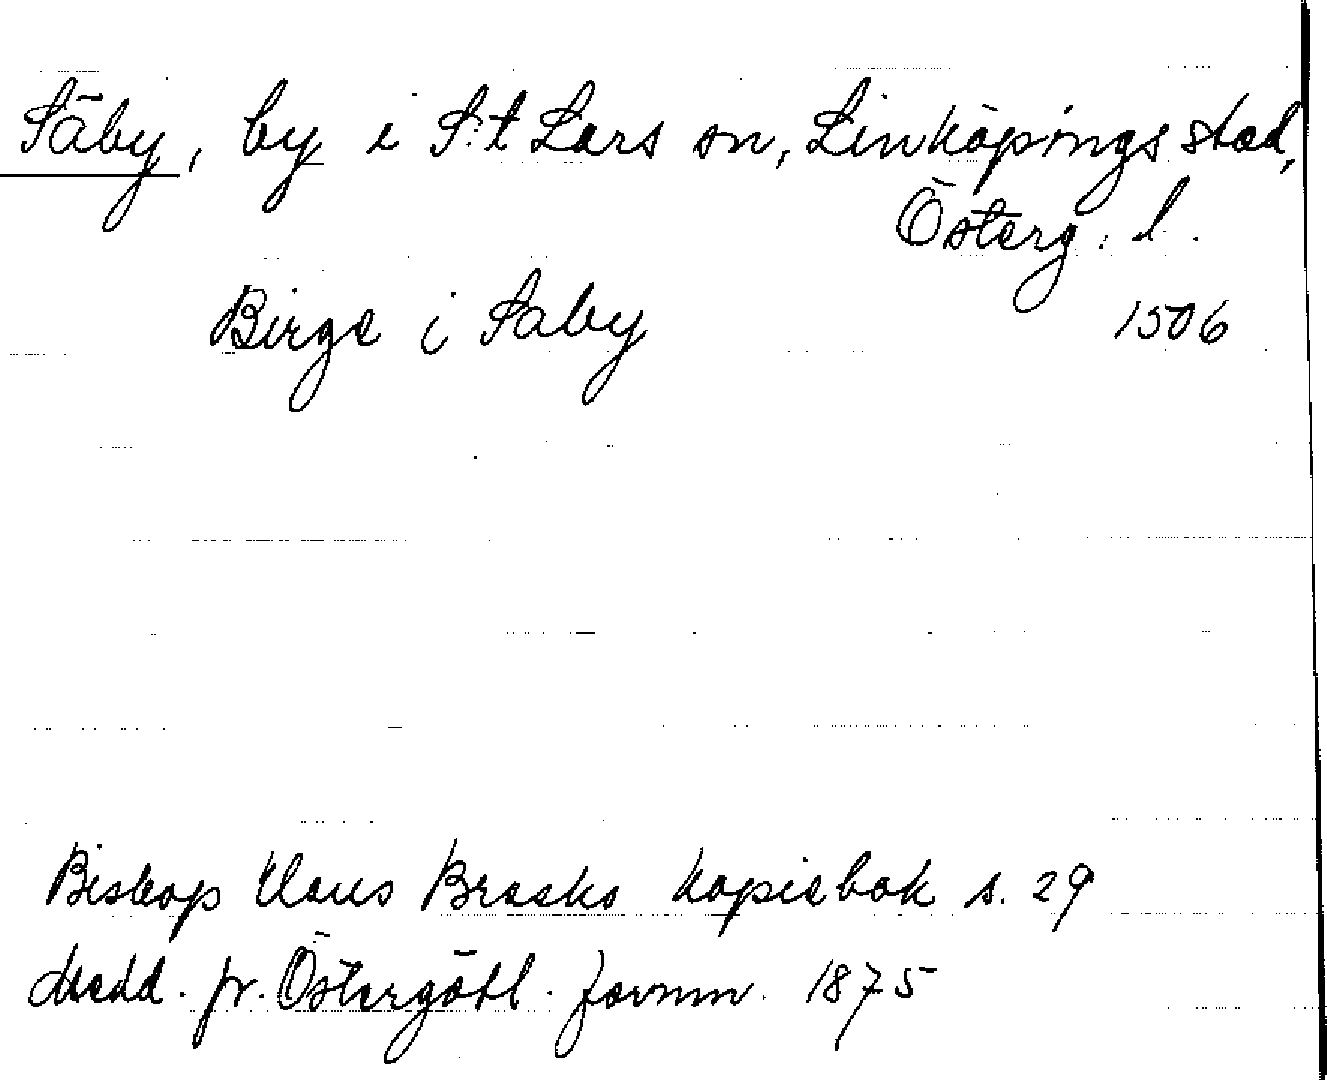 Säby, by i S:t Lars sn, Linköpings stad,
Österg. l.
Birge i Saby 1506
Biskop Claus Brasks kopiebok s. 29
Medd. fr. Östergötl. fornm. 1875